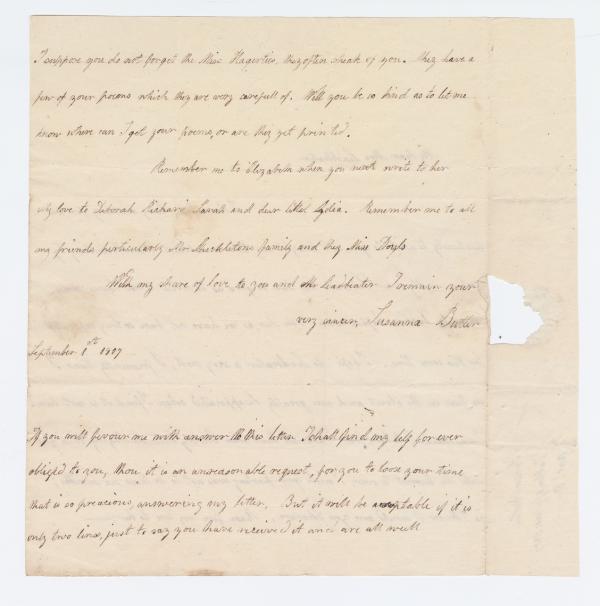 I suppose you do not forget the Miss Hagerties, they often speak of you. they have a
few of your poems which they are very carefull of. Will you be so kind as to let me
know where can I get your poems, or are they yet printed.
Remember me to Elizabeth when you next write to her
my love to Deborah Richard Sarah and dear little Lydia. Remember me to all
my friends particularly Mr Shackletons family and they Miss Doyls
With my share of love to you and Mr Leadbeater I remain your
very sincer, Susanna Butler
September 1st 1807
If you will favour me with answer to this letter I shall find my self for ever
oblig'd to you, thou it is an unreasonable request, for you to loose your time
that is so preacious, answering my letter. But it will be acceptable if it is
only two lines, just to say you have received it and are all well